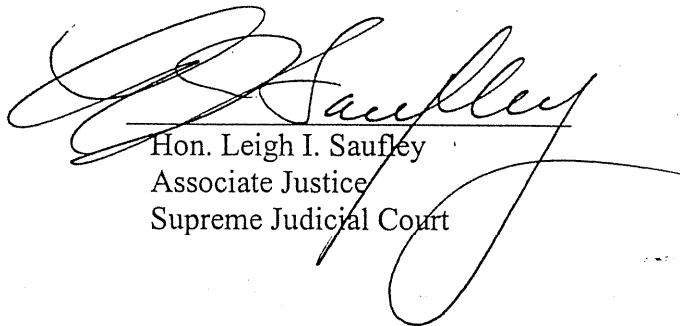 Saufley
Hon. Leigh I. Saufley
Associate Justice
Supreme Judicial Court